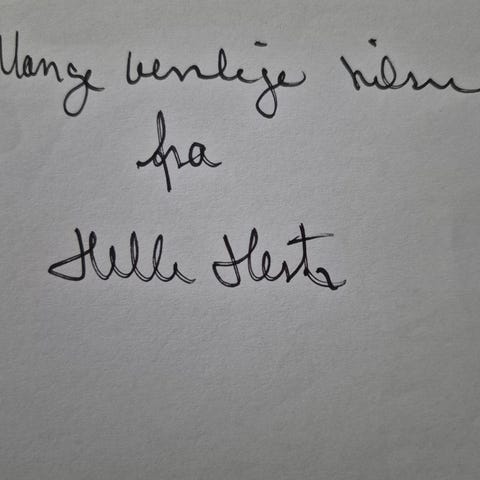 Mange venlige hilsn
fra
Helle Hertz